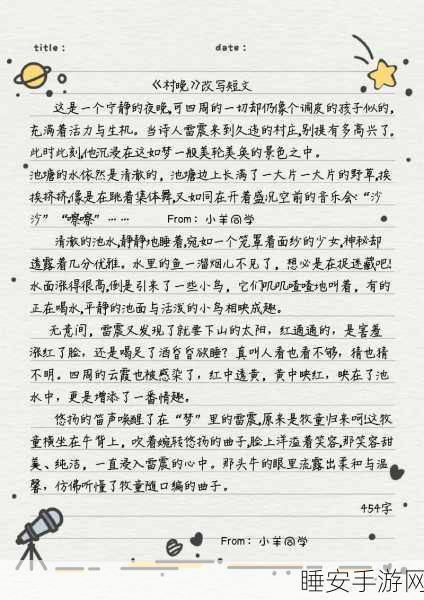 title： date：
《村晚》改写短文
这是一个宁静的夜晚,可四周的一切却仍像个调皮的孩子似的,
充满着活力与生机。当诗人雷震来到久违的村庄,别提有多高兴了,
此时此刻,他沉浸在这如梦一般美轮美奂的景色之中。
池塘的水依然是清澈的，池塘边上长满了一大片一大片的野草,挨
挨挤挤,像是在跳着集体舞,又如同在开着盛况空前的音乐会:“沙
沙”“嚓嚓”…… From：小羊同学
清澈的池水,静静地睡着,宛如一个笼罩着面纱的少女,神秘却
透露着几分优雅。水里的鱼一溜烟儿不见了，想必是在捉迷藏吧!
水面涨得很高,倒是引来了一些小鸟，它们叽叽喳喳地叫着，有的
正在喝水,平静的池面与活泼的小鸟相映成趣。
无意间，雷震又发现了就要下山的太阳，红通通的，是害羞
涨红了脸，还是喝足了酒昏昏欲睡？真叫人看也看不够，猜也猜
不明。四周的云霞也被感染了，红中透黄，黄中映红，映在了池
水中，更是增添了一番情趣。
悠扬的笛声唤醒了在“梦”里的雷震,原来是牧童归来呵!这牧
童横坐在牛背上，吹着婉转悠扬的曲子,脸上洋溢着笑容,那笑容甜
美、纯洁，一直浸入雷震的心中。那头牛的眼里流露出柔和与温
馨，仿佛听懂了牧童随口编的曲子。
454字
From：小羊同学
睡安手游网